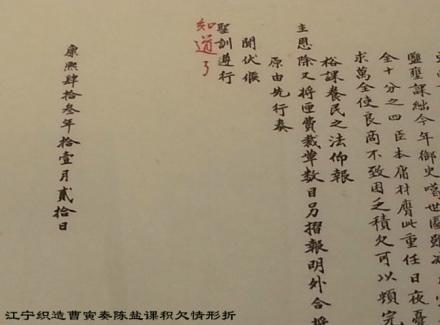 鹽壅課絀今年御史
全十分之四臣本庸材膺此重任日夜
求萬全使良商不致困乏積欠可以頻完
裕課養民之法仰報
主恩除又將匣費裁革數目另摺報明外合
原由先行奏
聞伏候
聖訓遵行
知道了
康熙肆拾叁年拾壹月貳拾日
江宁织造曹寅奏陈盐课积欠情形折